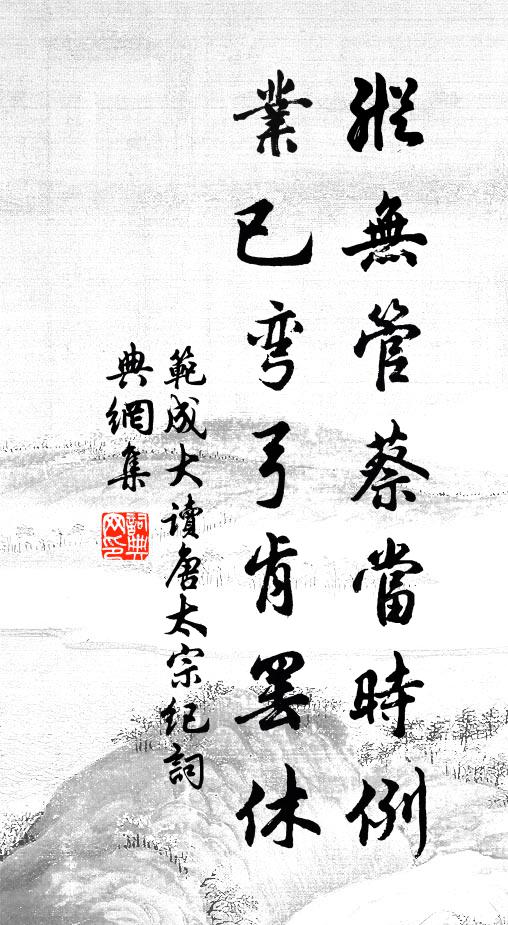 縱無管蔡當時例
業已弯弓肯罢休
範成大讀唐太宗纪詞
典網集
詞典
网印